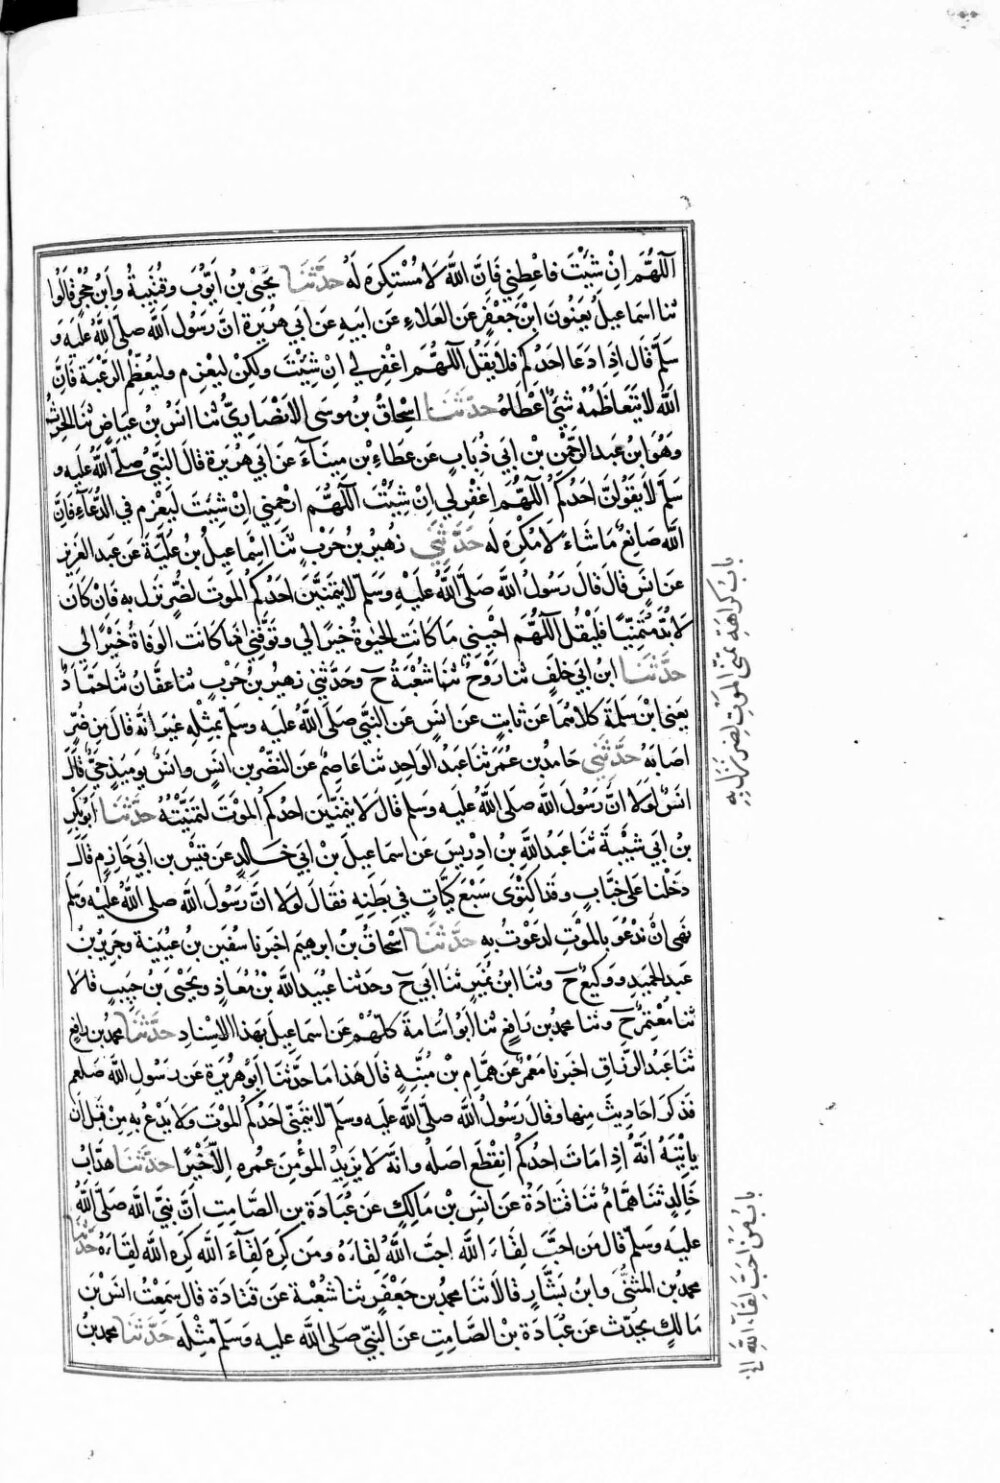 اللَّهُمَّ اِنْ شِئْتَ فَاعْطِنِي فَاِنَّ اللَّهَ لَا مُسْتَكْرِهَ لَهُ حَدَّثَنَا يَحْيَى بْنُ اَيُّوبَ وَقُتَيْبَةُ وَابْنُ حُجْرٍ قَالُوا
ثنا اسمَاعِيلُ يَعْنُونَ ابْنَ جَعْفَرٍ عَنِ العَلَاءِ عَن ابيهِ عَن اَبي هُرَيرَة انَّ رَسُول اللَّه صَلَّى اللَّهُ عَلَيه وَ
سَلَّم قَال اِذَا دَعَا احَدُكم فلَا يَقُل اللَّهُمَّ اغْفِر لي اِنْ شِئْتَ ولكِنْ لِيَعْزِم وليُعَظِّم الرَّغْبَة فَاِنَّ
اللَّه لَا يَتَعَاظَمُهُ شَيْ اَعْطَاهُ حَدَّثَنَا اِسْحَاقُ بنُ مُوسَى الانصَارِيُّ ثنا انَسُ بنُ عِيَاضٍ ثنا الحرثُ
وَهُوَ ابنُ عَبد الرَّحْمٰن بْنِ اَبي ذُبَابٍ عَن عَطَاء بْنِ مِينَآءَ عَن اَبي هُرَيرَة قالَ النَّبيُّ صلَّى اللَّهُ عَليه و
سَلَّم لَا يَقُولَنَّ احَدُكم اللَّهُمَّ اغْفِر لي اِنْ شِئْتَ اللَّهُمَّ ارْحَمْنِي اِنْ شِئتَ لِيَعْزِم في الدُّعَآءِ فَاِنَّ
اللَّه صَانِعٌ مَا شَاءَ لَا مُكْرِهَ لَه حَدَّثَنِي زُهَيرُ بنُ حَرْبٍ ثنَا اِسْمَاعِيلُ بنُ عُلَيَّةَ عَن عَبد العَزِيز
عَن انَسٍ قَالَ قَالَ رَسُولُ اللَّه صَلَّى اللَّهُ عَلَيْهِ وَسَلَّم لَا يَتَمَنَّيَنَّ احَدُكم المَوتَ لضُرٍّ نَزَل به فَاِنْ كَانَ
لَا بُدَّ مُتَمَنِّيًا فَلْيَقُل اللَّهُمَّ احْيِنِي مَا كَانَت الحَيٰوةُ خَيْرًا لِي وَتَوَفَّنِي اِذَا كَانَت الوَفَاةُ خَيْرًا لِي
حَدَّثَنَا ابنُ ابي خَلَفٍ ثنا رَوْحٌ ثنا شُعْبَةُ ح وحَدَّثَني زهَيرُ بن حَرْبٍ ثنا عَفَّانُ ثنا حَمَّادٌ
يعَني ابْنَ سَلَمَةَ كلَاهُمَا عَن ثابتٍ عَن انَسٍ عَن النَّبي صَلَّى اللَّهُ عَلَيه وَسَلَّم بمِثْلِهِ غيرَ انَّهُ قَالَ مِن ضُرٍّ
اَصَابَهُ حَدَّثَنِي حَامِدُ بن عُمَرَ ثنا عَبْدُ الوَاحِد ثنا عَاصِمٌ عَن النَّضْر بن انَسٍ وانَسٌ يَومَئِذٍ حَيٌّ قَالَ
انَسٌ لَولَا انَّ رَسُولَ اللَّه صَلَّى اللَّهُ عَلَيه وَسَلَّم قَالَ لَا يتمَنَّيَن احَدُكُم المَوْتَ لَتَمَنَّيْتُهُ حَدَّثَنَا اَبُو بَكْرِ
بنُ ابي شَيْبَةَ ثنا عَبدُ اللَّهِ بن اِدْرِيسَ عَن اسمَاعِيلَ بْنِ ابي خَالِدٍ عَن قَيْسِ بنِ ابي حَازِمٍ قَالَ
دَخَلْنَا عَلَى خَبَّابٍ وقَدِ اكْتَوَى سَبْعَ كَيَّاتٍ في بَطْنِهِ فَقَالَ لَولَا انَّ رَسُولَ اللَّه صلى اللَّهُ عَلَيْه وَسَلَّم
نَهَى انْ نَدْعُوَ بِالمَوْتِ لَدَعَوْتُ بِهِ حَدَّثَنَا اِسْحَاقُ بنُ ابرهيم اخبرنا سُفين بنُ عُيَينَة وجَرِيرُ بنُ
عَبد الحَمِيد ووَكِيعٌ ح وثنا ابنُ نُمَيرٍ ثنا اَبي ح وحَدَّثنا عُبَيد اللَّه بنُ مُعَاذٍ ويَحْيَى بنُ حَبِيبٍ قَالَا
ثنا مُعْتَمِرٌ ح وثنا محمدُ بن رَافِعٍ ثنا اَبُو اُسَامَةَ كلُّهُمْ عَن اسمَاعِيلَ بهَذَا الاسْنَادِ حَدَّثَنَا محمدُ بن رافِعٍ
ثنا عَبدُ الرَّزَّاق اخبرنا مَعْمَرٌ عَن هَمَّام بْن مُنَبِّهٍ قَالَ هَذَا مَا حَدَّثَنَا اَبُو هُرَيْرَةَ عَن رَسُولِ اللَّه صَلعم
فَذَكَرَ احَادِيثَ مِنهَا وقَالَ رَسُولُ اللَّه صَلَّى اللَّهُ عَلَيه وسَلَّم لا يتَمَنَّى احَدُكُم المَوْتَ وَلَا يَدْعُ بِهِ مِنْ قَبْلِ اَن
يَاتِيَهُ انَّهُ اِذَا مَاتَ احَدُكُم انقَطَعَ امَلُهُ وانَّهُ لَا يَزِيدُ المُؤمِنَ عُمرهِ اِلَّا خَيْرًا حَدَّثَنَا هَدَّابُ
خَالِدٍ ثنا هَمَّامٌ ثنَا قَتَادَةُ عَن انَسِ بْنِ مَالِكٍ عَن عُبَادَة بنِ الصَّامِتِ اَنَّ نَبِيَّ اللَّه صَلَّى اللَّهُ
عَلَيه وَسَلَّم قَالَ مَن احَبَّ لِقَاءَ اللَّه احَبَّ اللَّهُ لِقَاءَهُ ومَن كَرِهَ لِقَآءَ اللَّه كَرِه اللَّه لِقَاءَهُ حَدَّثَنَا
محمدُ بن المثنَّى وَابنُ بَشَّارٍ قَالَا ثنا محمدُ بن جَعْفَرٍ ثنا شُعْبَة عَن قَتَادَةَ قَال سَمِعْتُ انَسَ بْنَ
مَالِكٍ يحَدِّثُ عَن عُبَادَةَ بْن الصَّامِتِ عَن النَّبي صَلَّى اللَّه عَلَيه وَسَلَّم مِثْلَهُ حَدَّثَنَا محمدُ بنُ
بابُ كرَاهَةِ تمَنِّي المَوْتِ لضُرٍّ نَزَل به
بابُ مَنْ احَبَّ لِقَآءَ اللَّهِ الخ